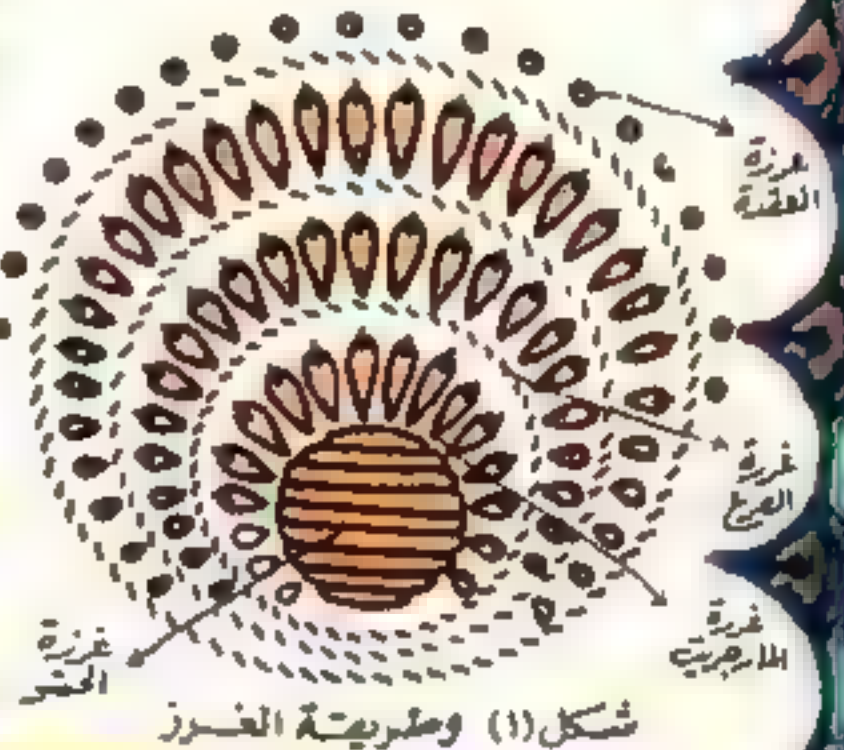 غرزة
العقدة
غرزة
الفرع
غرزة
المارجريت
غرزة
الحشو
شكل (١) وطريقة الغرز